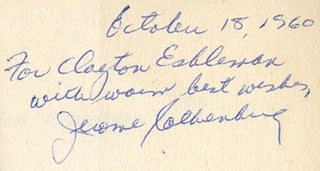 October 18, 1960
For Clayton Eshleman
with warm best wishes,
Jerome Rothenberg